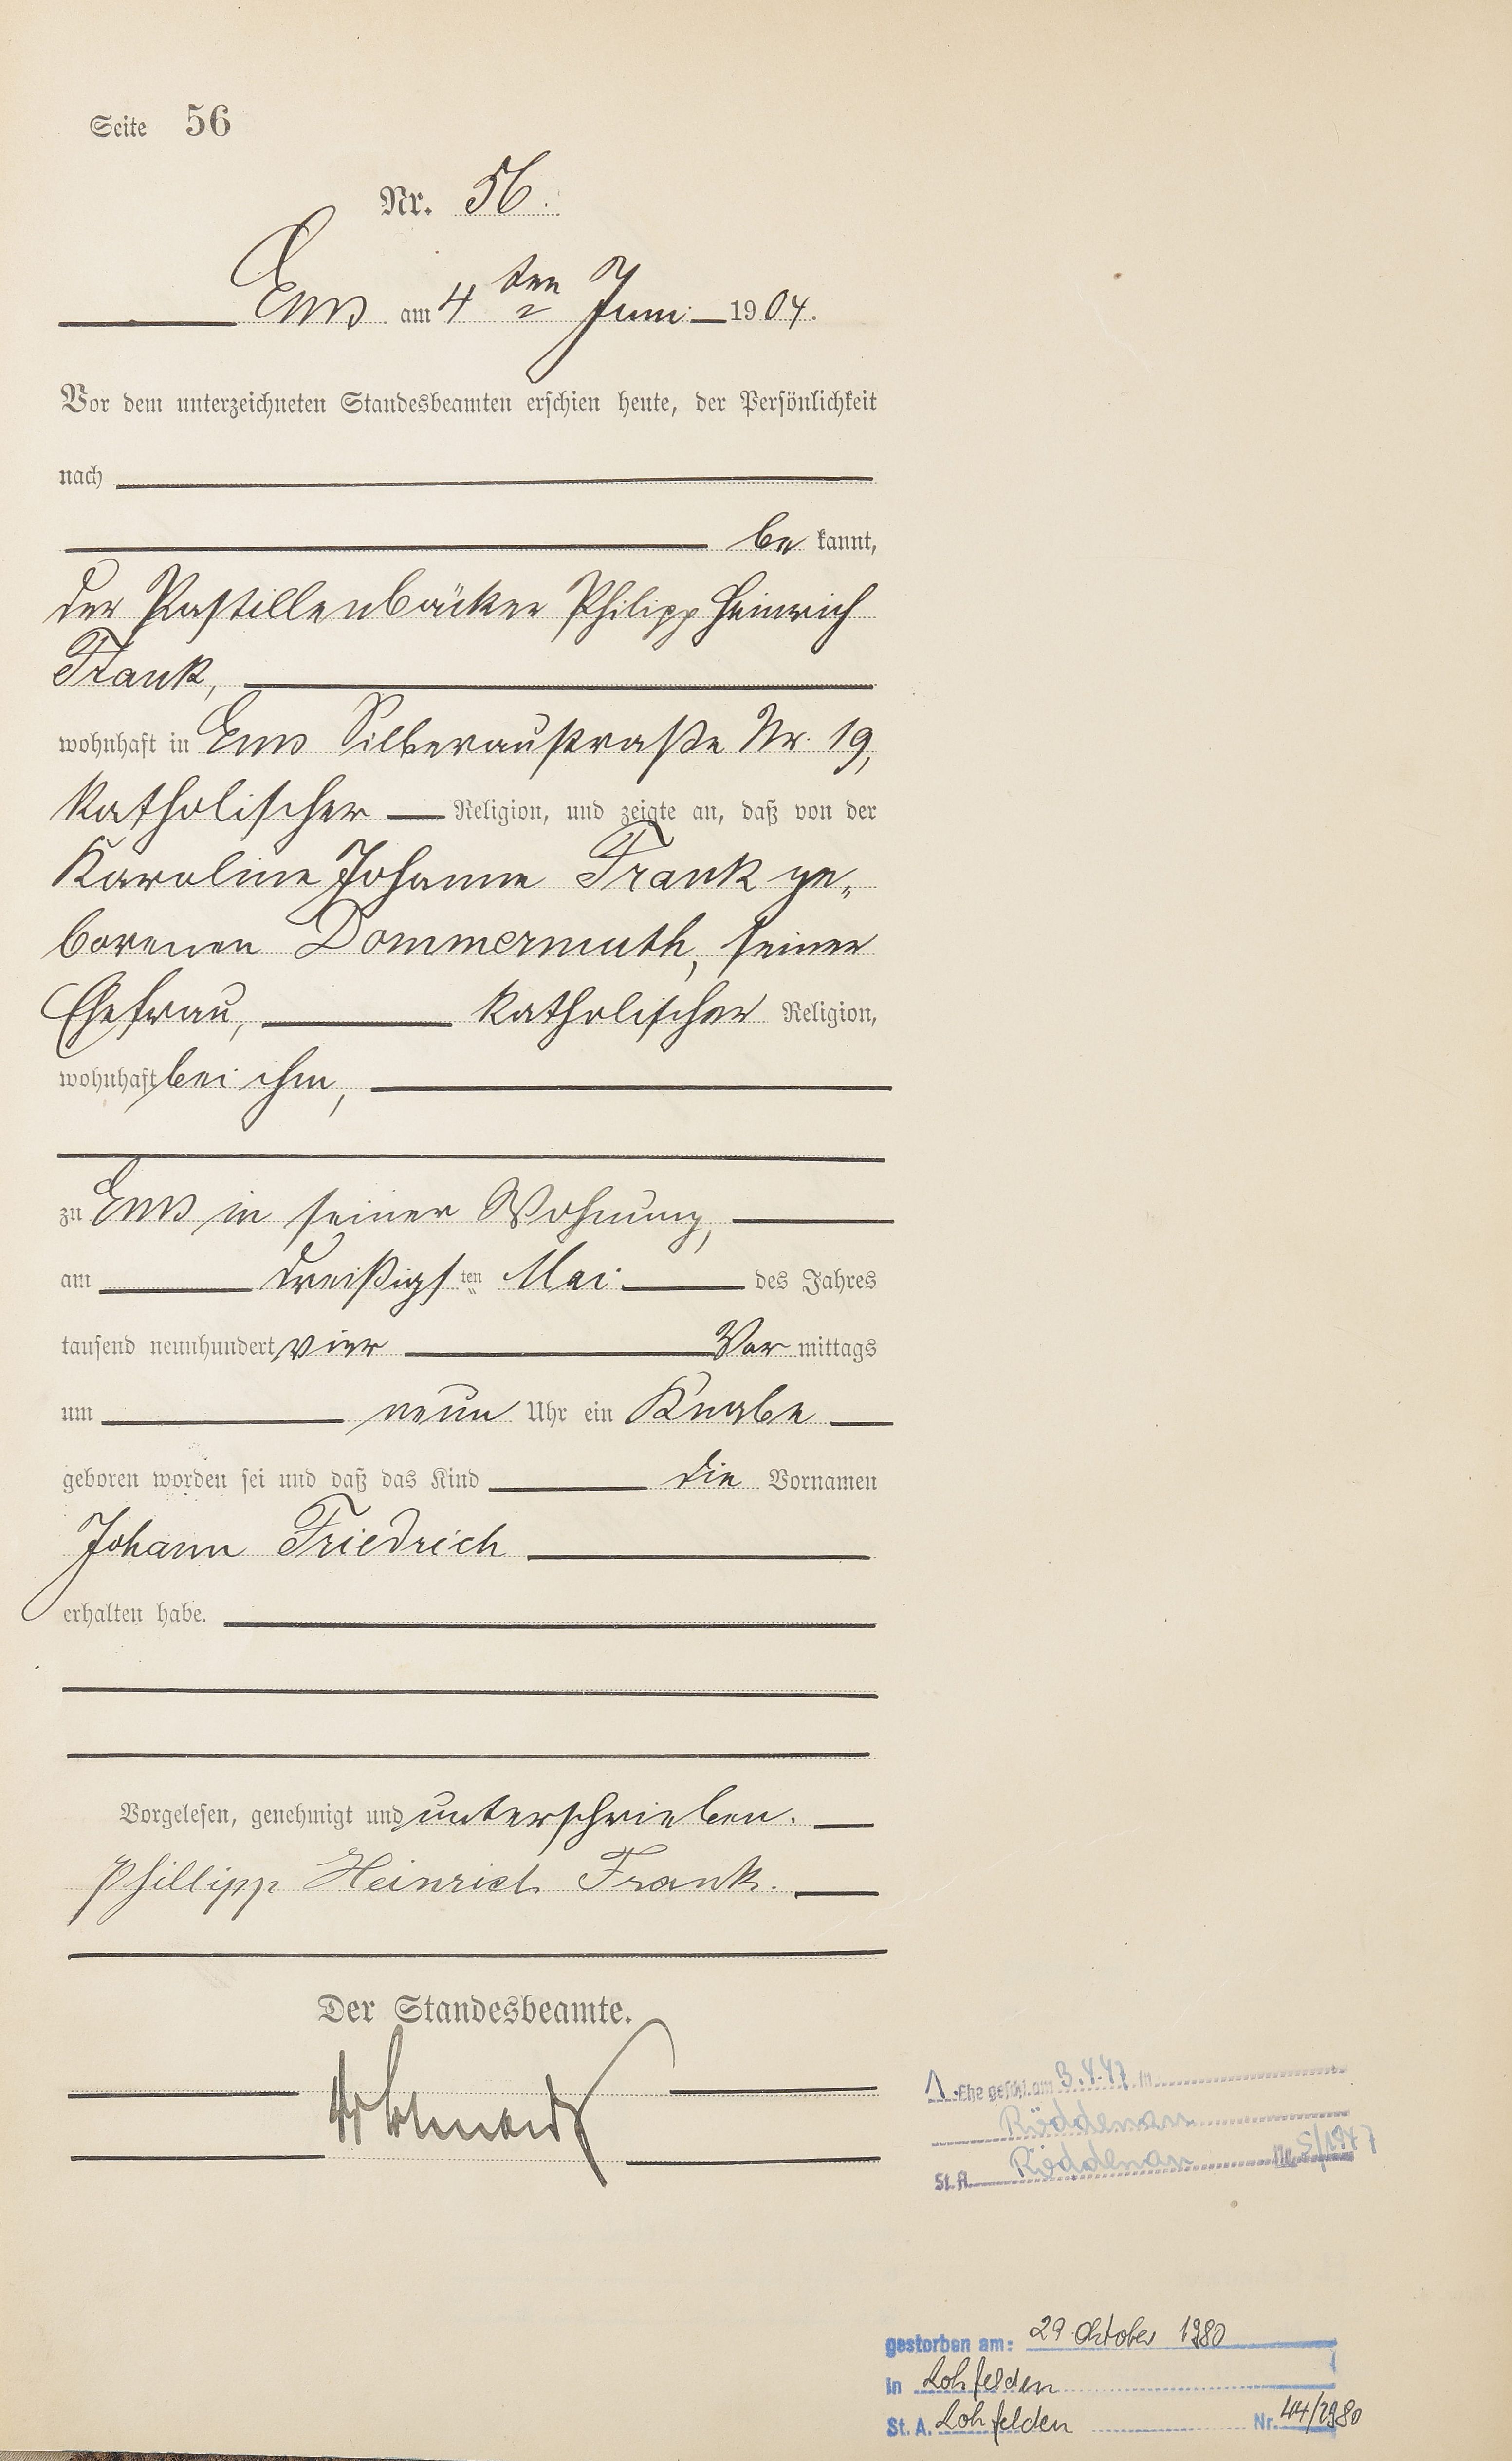 Seite 56
Nr. 56.
Ems am 4ten Juni 1904.
Vor dem unterzeichneten Standesbeamten erschien heute, der Persönlichkeit
nach
be kannt,
der Pastillenbäcker Philipp Heinrich
Frank,
wohnhaft in Ems Silberaustraße Nr. 19,
katholischer Religion, und zeigte an, daß von der
Karoline Johanne Frank ge-
borenen Dommermuth, seiner
Ehefrau, katholischer Religion,
wohnhaft bei ihm,
zu Ems in seiner Wohnung,
am dreißigsten Mai des Jahres
tausend neunhundert vier Vor mittags
um neun Uhr ein Knabe
geboren worden sei und daß das Kind die Vornamen
Johann Friedrich
erhalten habe.
Vorgelesen, genehmigt und unterschrieben.
Phillipp Heinrich Frank.
Der Standesbeamte.
1. Ehe geschl. am 3.4.47 in
Röddenau
St. A. Röddenau Nr. 5/1947
gestorben am: 29. Oktober 1980
in Lohfelden
St. A. Lohfelden Nr. 44/1980